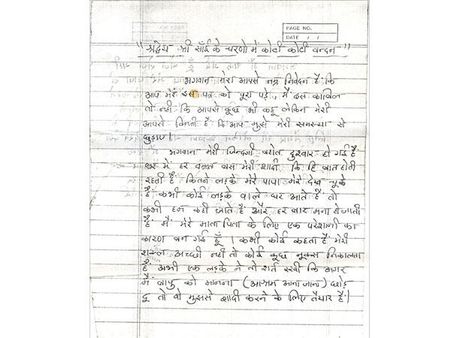 PAGE NO.
DATE / /
"श्रद्धेय श्री साँई के चरणो में कोटी कोटी वन्दन"
भगवान मेरा आपसे नम्र निवेदन है कि
आप मेरे इस पत्र को पूरा पढ़े, मैं इस काबिल
तो नहीं कि आपसे कुछ भी कहू लेकिन मेरी
आपसे विनती है कि आप मुझे मेरी समस्या से
छुड़ाए।
भगवान मेरी जिन्दगी बहोत दुश्वार हो गई है
घर में हर वक्त बस मेरी शादी कि हि बात होती
रहती है कितने लड़के मेरे पापा मेरे देख चुके
है कभी कोई लड़के वाले घर आते है तो
कभी हम कही जाते है और हर बार मना हो जाती
है मैं मेरे माता पिता के लिए एक परेशानी का
कारण बन गई हूँ। कभी कोई कहता है मेरी
शक्ल अच्छी नहीं तो कोई कुछ नुक्स निकालता
है अभी एक लड़के ने तो शर्त रखी कि अगर
मैं बापु को मानना (आश्रम आना जाना) छोड़
दू तो वो मुझसे शादी करने के लिए तैयार है।